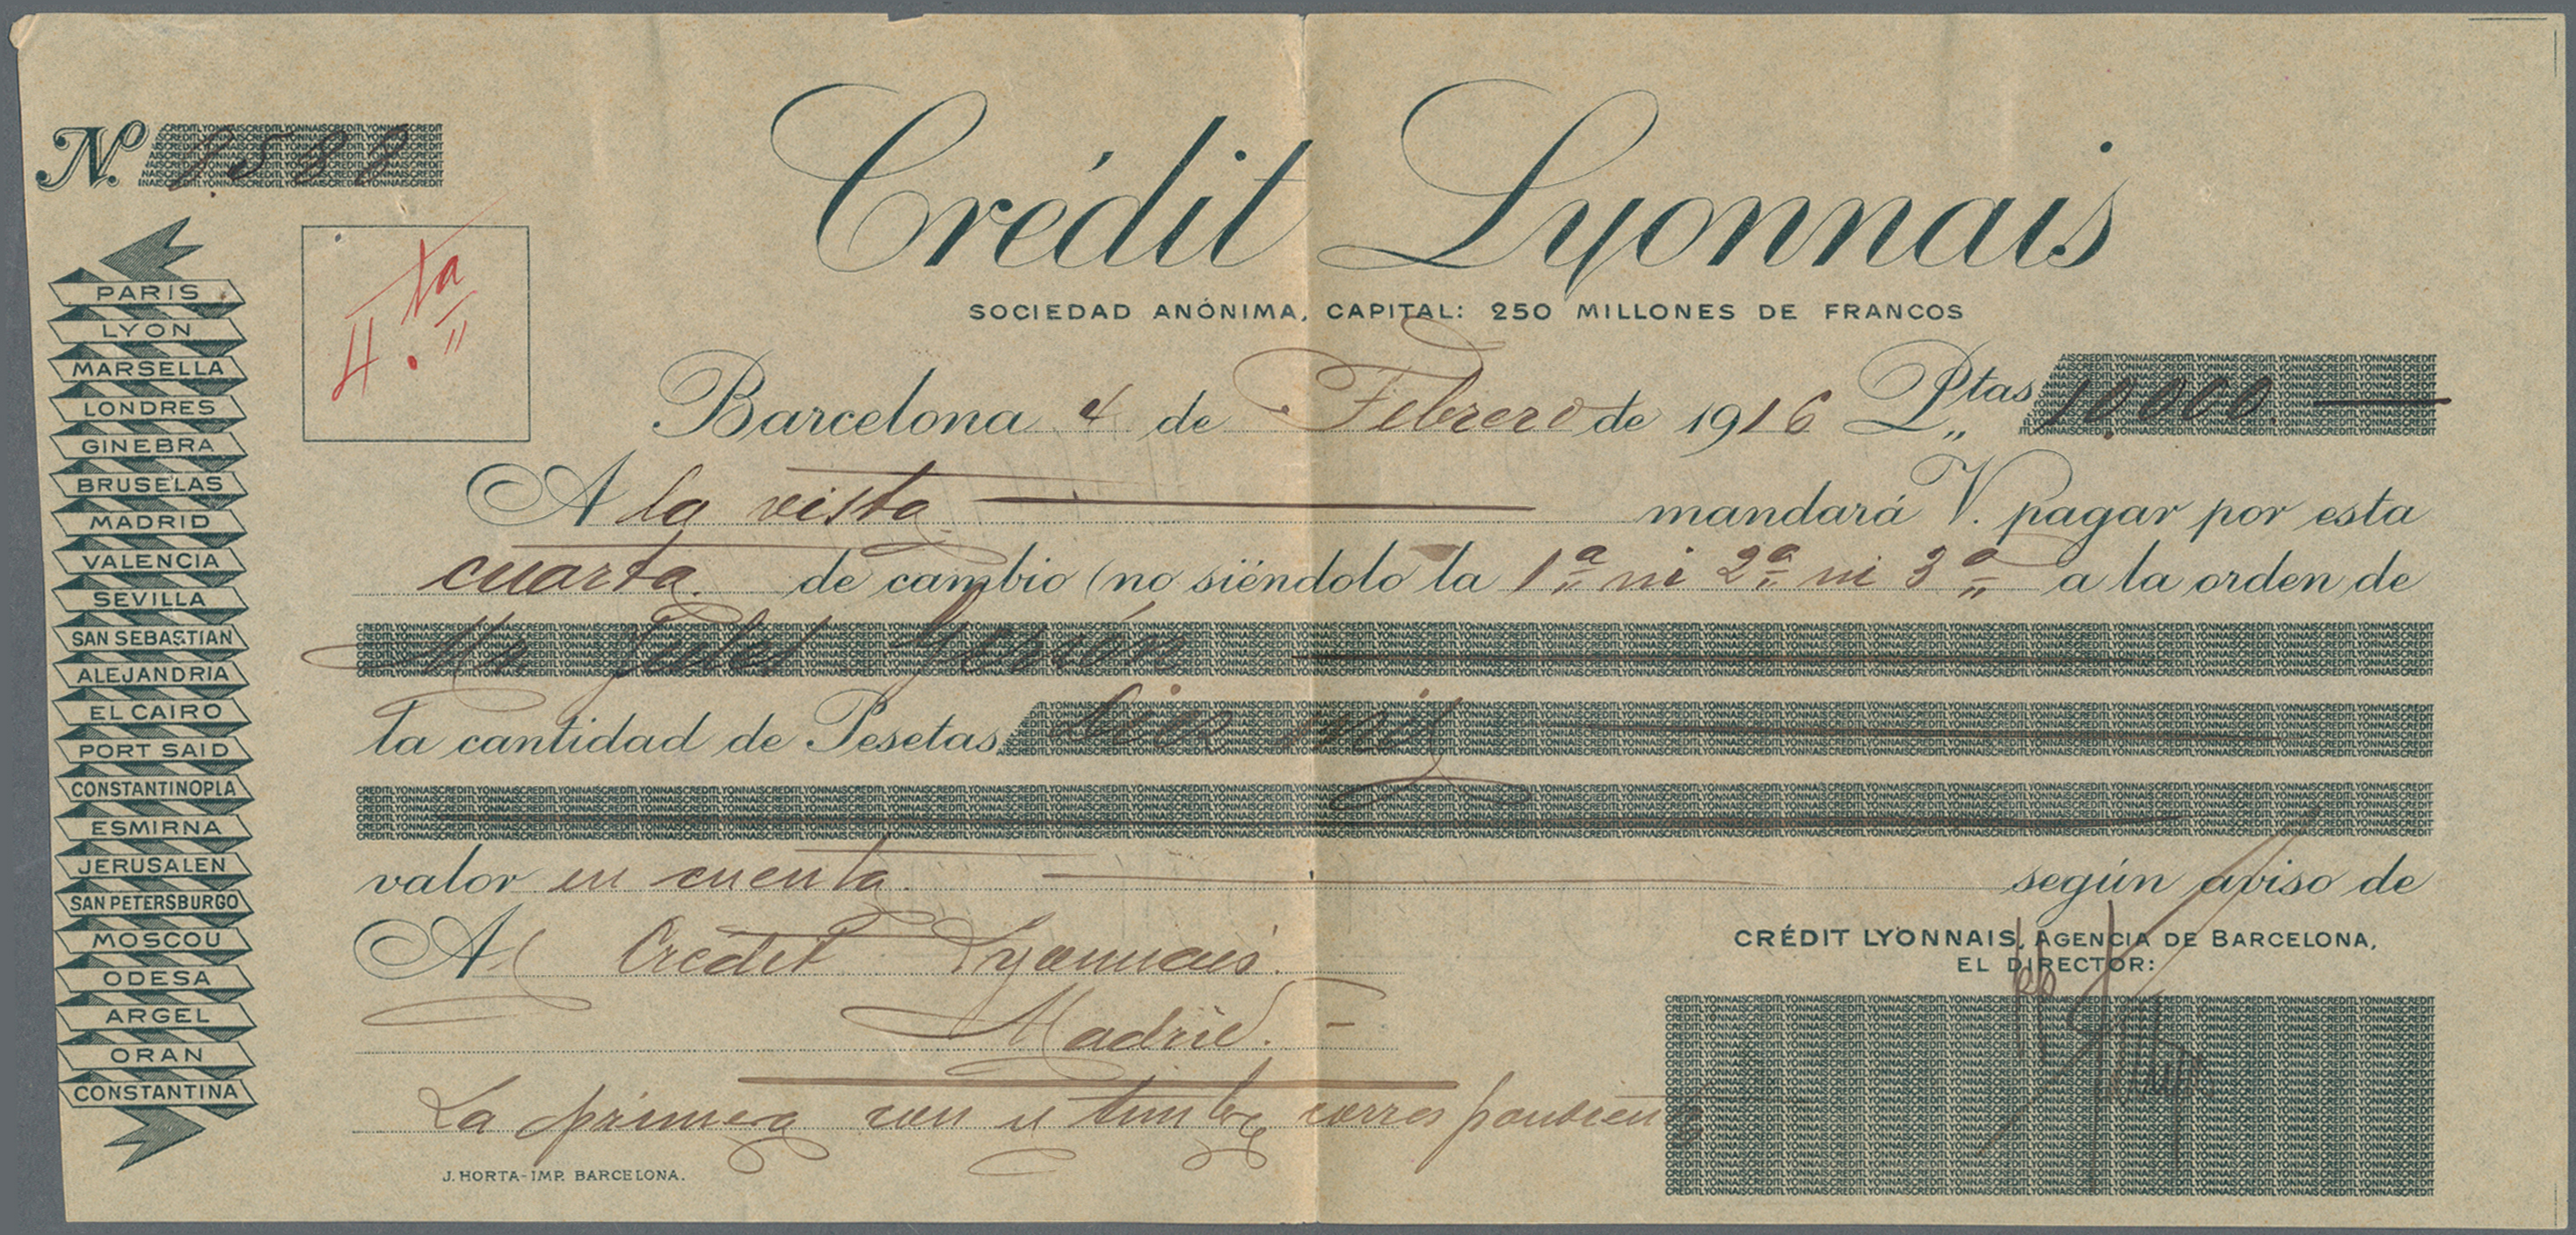 Nº 1.588
4.ta
Crédit Lyonnais
SOCIEDAD ANÓNIMA, CAPITAL: 250 MILLONES DE FRANCOS
Barcelona 4 de Febrero de 1916 Ptas 10.000.
A la vista mandará V. pagar por esta
cuarta. de cambio (no siéndolo la 1ª ni 2ª ni 3ª a la orden de
Mr. Jules
la cantidad de Pesetas, diez mil
valor en cuenta. según aviso de
Al Crédit Lyonnais.
Madrid.
La primera con el timbre correspondiente
CRÉDIT LYONNAIS, AGENCIA DE BARCELONA,
EL DIRECTOR:
pp
PARIS
LYON
MARSELLA
LONDRES
GINEBRA
BRUSELAS
MADRID
VALENCIA
SEVILLA
SAN SEBASTIAN
ALEJANDRIA
EL CAIRO
PORT SAID
CONSTANTINOPLA
ESMIRNA
JERUSALEN
SAN PETERSBURGO
MOSCOU
ODESA
ARGEL
ORAN
CONSTANTINA
J. HORTA-IMP. BARCELONA.